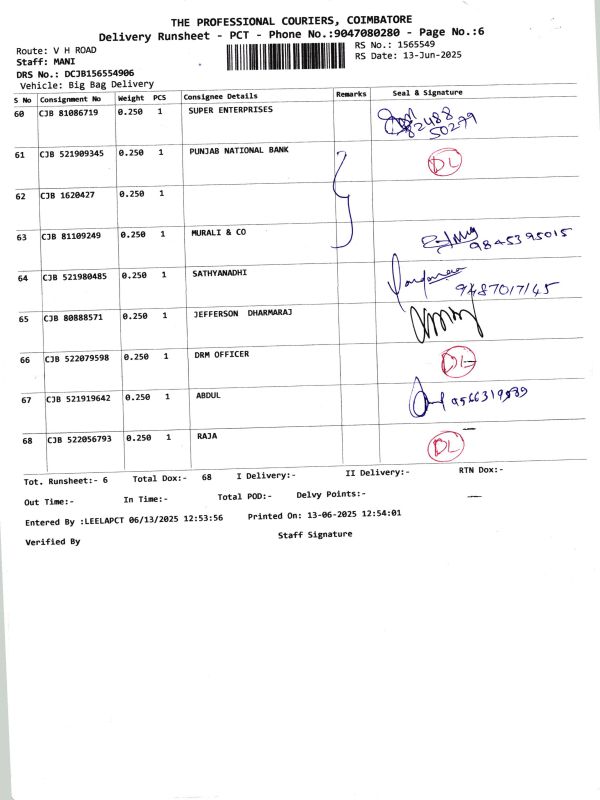 THE PROFESSIONAL COURIERS, COIMBATORE
Delivery Runsheet - PCT - Phone No.:9047080280 - Page No.:6
Route: V H ROAD RS No.: 1565549
Staff: MANI RS Date: 13-Jun-2025
DRS No.: DCJB156554906
Vehicle: Big Bag Delivery
S No Consignment No Weight PCS Consignee Details Remarks Seal & Signature
60 CJB 81086719 0.250 1 SUPER ENTERPRISES 82488
50279
61 CJB 521909345 0.250 1 PUNJAB NATIONAL BANK DL
62 CJB 1620427 0.250 1
63 CJB 81109249 0.250 1 MURALI & CO 9845395015
64 CJB 521980485 0.250 1 SATHYANADHI 9487017145
65 CJB 80888571 0.250 1 JEFFERSON DHARMARAJ
66 CJB 522079598 0.250 1 DRM OFFICER DL
67 CJB 521919642 0.250 1 ABDUL
68 CJB 522056793 0.250 1 RAJA DL
Tot. Runsheet:- 6 Total Dox:- 68 I Delivery:- II Delivery:- RTN Dox:-
Out Time:- In Time:- Total POD:- Delvy Points:-
Entered By :LEELAPCT 06/13/2025 12:53:56 Printed On: 13-06-2025 12:54:01
Verified By Staff Signature